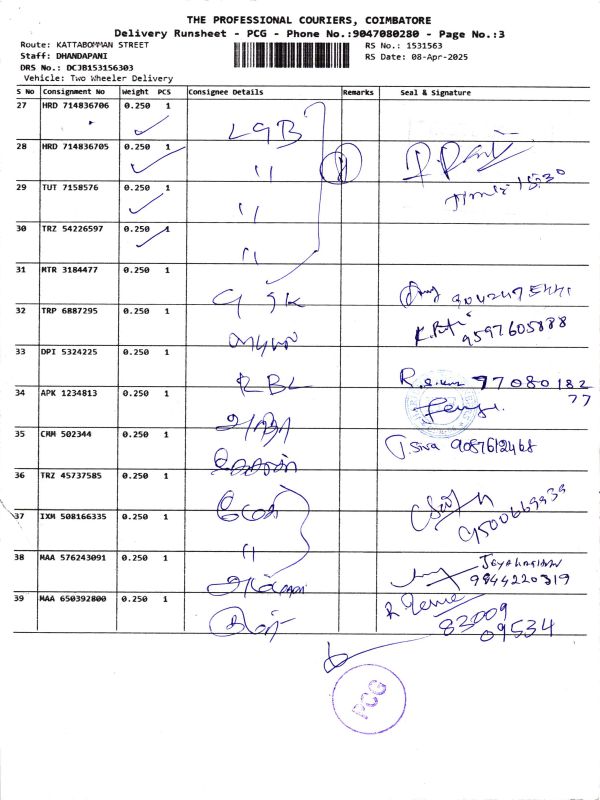 THE PROFESSIONAL COURIERS, COIMBATORE
Delivery Runsheet - PCG - Phone No.:9047080280 - Page No.:3
Route: KATTABOMMAN STREET
RS No.: 1531563
Staff: DHANDAPANI
RS Date: 08-Apr-2025
DRS No.: DCJB153156303
Vehicle: Two Wheeler Delivery
S No Consignment No Weight PCS Consignee Details Remarks Seal & Signature
27 HRD 714836706 0.250 1 LGB
28 HRD 714836705 0.250 1 "
15:30
29 TUT 7158576 0.250 1 "
30 TRZ 54226597 0.250 1 "
31 MTR 3184477 0.250 1
32 TRP 6887295 0.250 1 9597605888
33 DPI 5324225 0.250 1 RBL 77080182
77
34 APK 1234813 0.250 1
35 CMM 502344 0.250 1 T.Siva 9087612468
36 TRZ 45737585 0.250 1
37 IXM 508166335 0.250 1 " 9500669939
38 MAA 576243091 0.250 1 9944220319
39 MAA 650392800 0.250 1 82009
09534
PCG